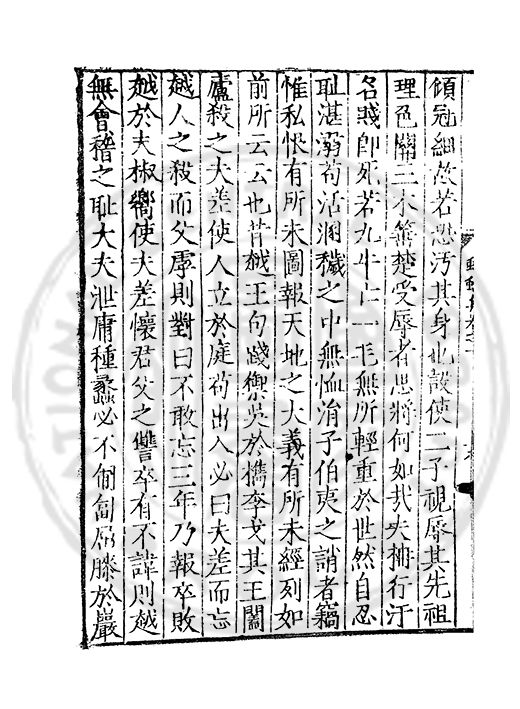 傾冠細故若恐汚其身也設使二子視辱其先祖
理色關三木箠楚受辱者思將何如哉夫㧞行汙
名賤即死若九牛亡一毛無所輕重於世然自忍
耻湛溺苟活溷穢之中無恤涓子伯夷之誚者竊
惟私恨有所未圖報天地之大義有所未經列如
前所云云也昔越王句踐禦吳於檇李戈其王闔
廬殺之夫差使人立於庭苟出入必曰夫差而忘
越人之殺而父虖則對曰不敢忘三年乃報卒敗
越於夫椒嚮使夫差懷君父之讐卒有不諱則越
無會稽之耻大夫泄庸種蠡必不匍匐屈膝於巖